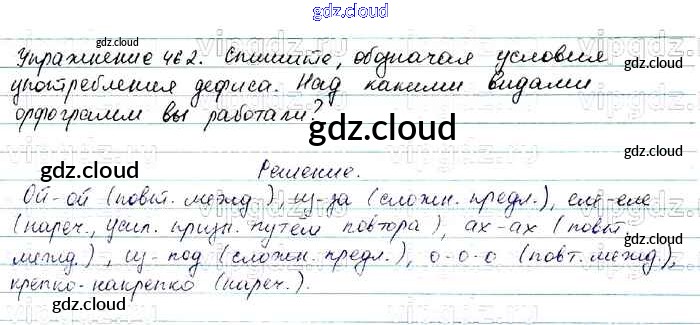 gdz.cloud
gdz.cloud
Упражнение 462. Спишите, обозначая условия
употребления дефиса. Над какими видами
орфограмм вы работали?
gdz.cloud
gdz.cloud
gdz.cloud
Решение.
Ой-ой (повт. межд.), из-за (сложн. предл.), еле-еле
(нареч., усил. призн. путем повтора), ах-ах (повт.
межд.), из-под (сложн. предл.), о-о-о (повт. межд.),
крепко-накрепко (нареч.).
gdz.cloud
gdz.cloud
gdz.cloud